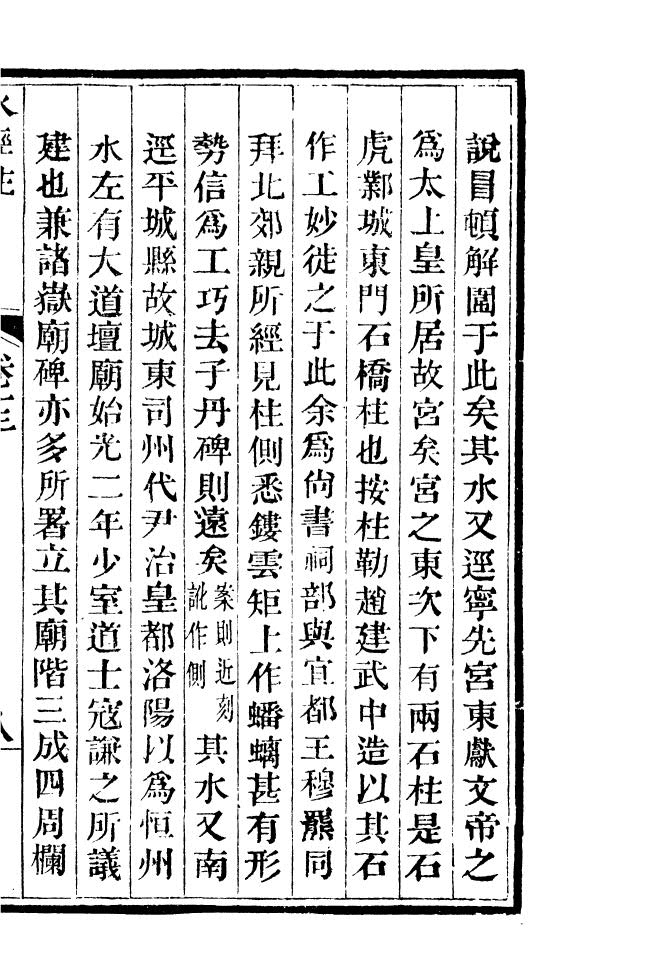 說冒頓解圍于此矣其水又逕寧先宮東獻文帝之
爲太上皇所居故宮矣宮之東次下有兩石柱是石
虎鄴城東門石橋柱也按柱勒趙建武中造以其石
作工妙徙之于此余爲尙書祠部與宜都王穆羆同
拜北郊親所經見柱側悉鏤雲矩上作蟠螭甚有形
勢信爲工巧去子丹碑則遠矣案則近刻訛作側其水又南
逕平城縣故城東司州代尹治皇都洛陽以爲恒州
水左有大道壇廟始光二年少室道士寇謙之所議
建也兼諸嶽廟碑亦多所署立其廟階三成四周欄
水經注 卷十三 八